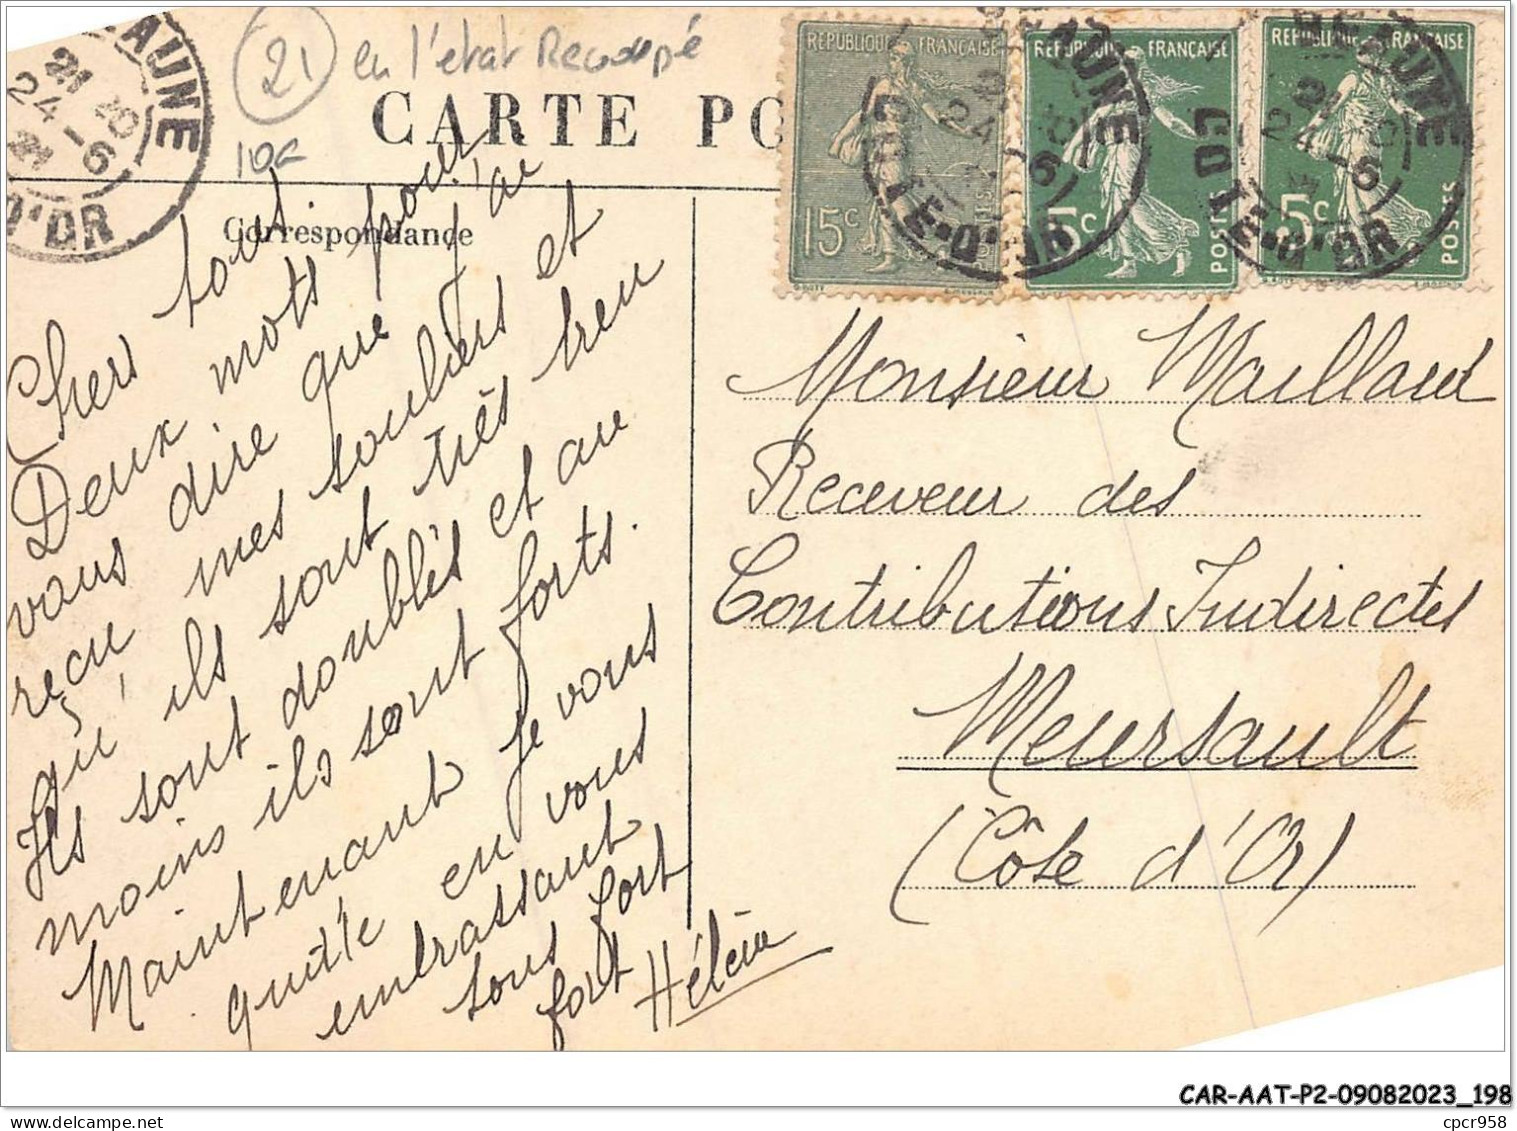 21 en l'état Recoupé
10F
CARTE PO
Correspondance
BEAUNE
24-6
21
CÔTE-D'OR
RÉPUBLIQUE FRANÇAISE
15c
POSTES
RÉPUBLIQUE FRANÇAISE
5c
POSTES
RÉPUBLIQUE FRANÇAISE
5c
POSTES
Chers tous.
Deux mots pour
vous dire que j'ai
reçu mes souliers et
qu'ils sont très bien
Ils sont doublés et au
moins ils sont forts.
Maintenant je vous
quitte en vous
embrassant
tous fort
fort Hélène
Monsieur Maillard
Receveur des
Contributions Indirectes
Meursault
(Côte d'Or)
CAR-AAT-P2-09082023_198
cpcr958